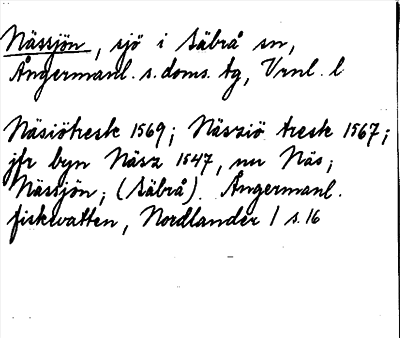 Nässjön, sjö i Säbrå sn,
Ångermanl. s. doms. tg, Vrnl. l
Näsiötresk 1569; Näsziö tresk 1567;
jfr byn Näsz 1547, nu Näs;
Nässjön; (Säbrå). Ångermanl.
fiskevatten, Nordlander 1 s. 16